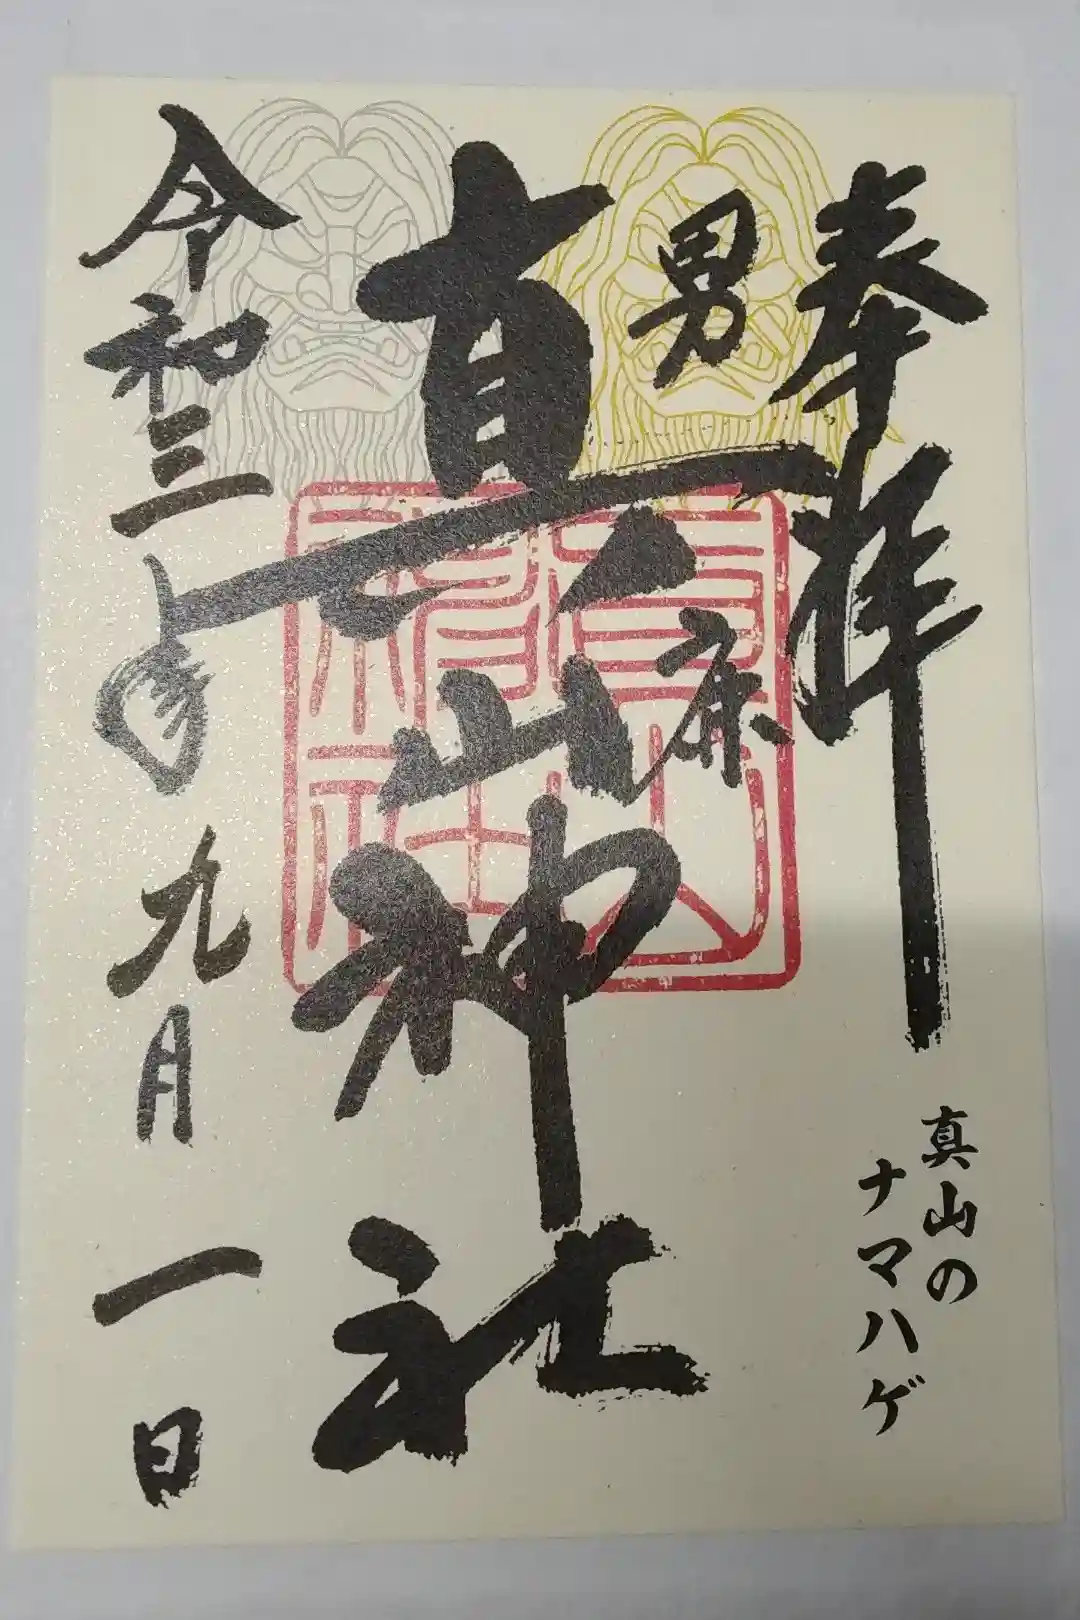 奉拝
真山の
ナマハゲ
男鹿
真山神社
令和三年九月一日